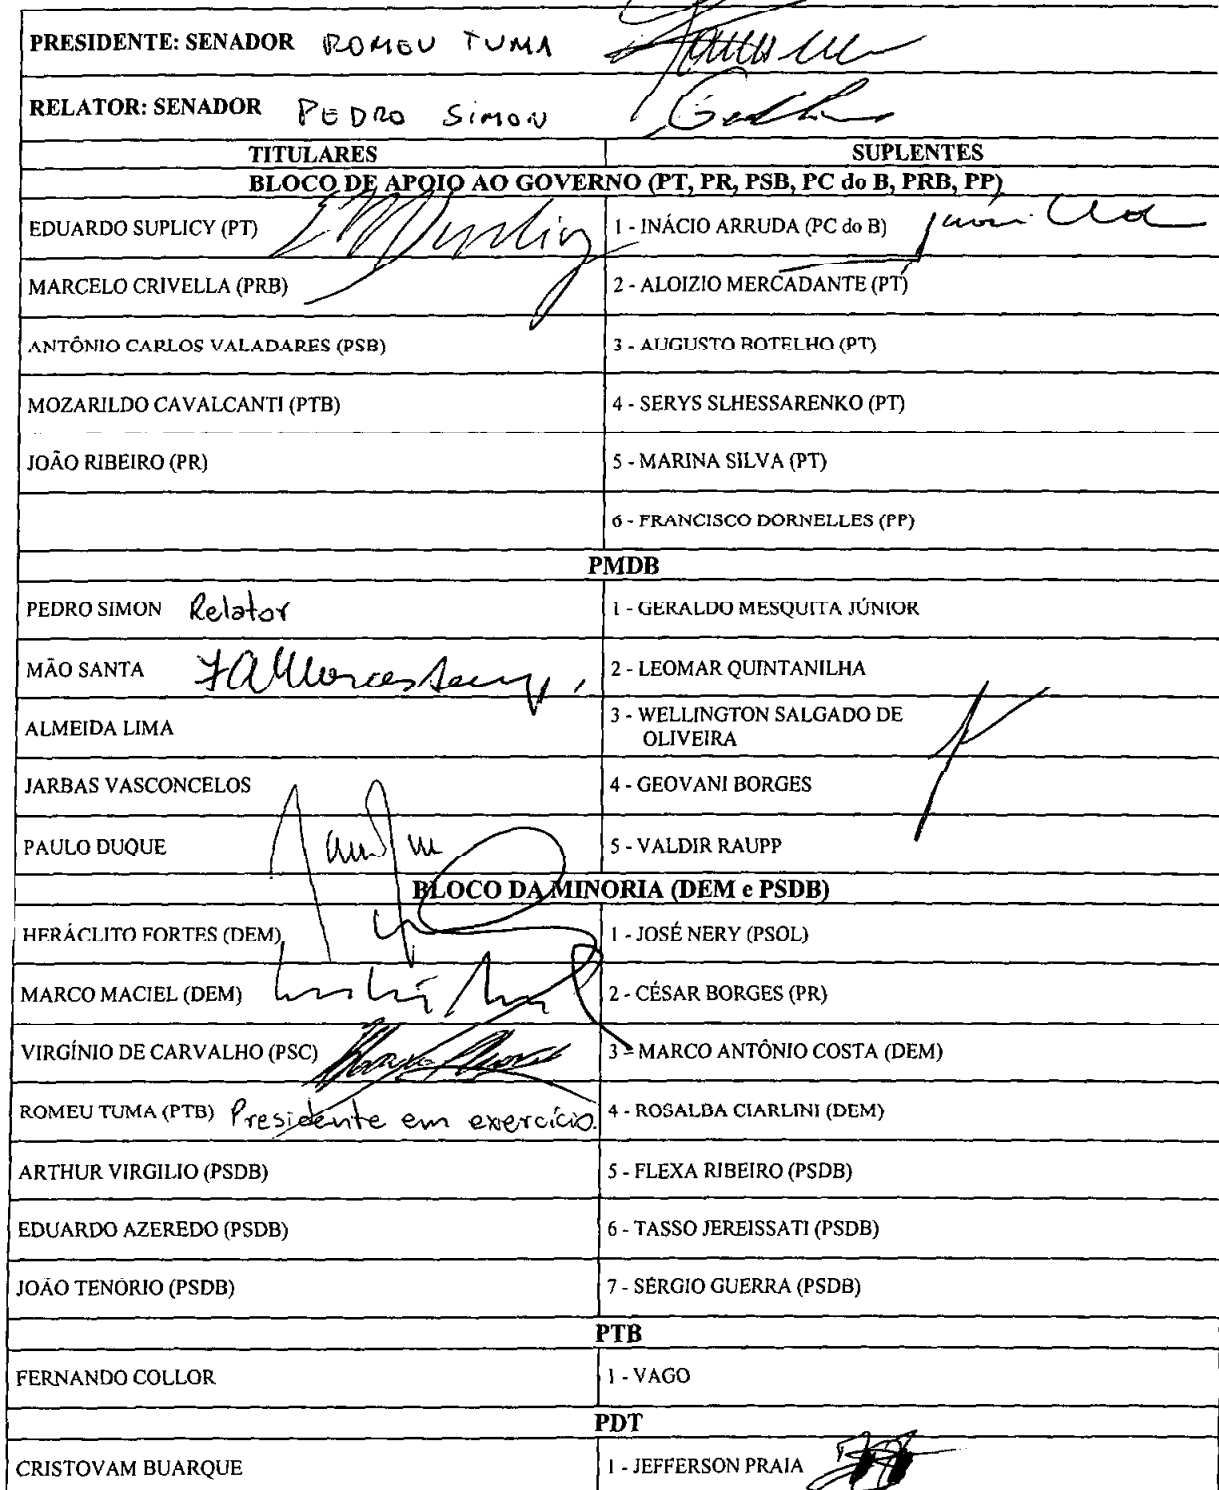 PRESIDENTE: SENADOR ROMEU TUMA
RELATOR: SENADOR PEDRO SIMON
TITULARES SUPLENTES
BLOCO DE APOIO AO GOVERNO (PT, PR, PSB, PC do B, PRB, PP)
EDUARDO SUPLICY (PT) 1 - INÁCIO ARRUDA (PC do B)
MARCELO CRIVELLA (PRB) 2 - ALOIZIO MERCADANTE (PT)
ANTÔNIO CARLOS VALADARES (PSB) 3 - AUGUSTO BOTELHO (PT)
MOZARILDO CAVALCANTI (PTB) 4 - SERYS SLHESSARENKO (PT)
JOÃO RIBEIRO (PR) 5 - MARINA SILVA (PT)
6 - FRANCISCO DORNELLES (PP)
PMDB
PEDRO SIMON Relator 1 - GERALDO MESQUITA JÚNIOR
MÃO SANTA 2 - LEOMAR QUINTANILHA
ALMEIDA LIMA 3 - WELLINGTON SALGADO DE
OLIVEIRA
JARBAS VASCONCELOS 4 - GEOVANI BORGES
PAULO DUQUE 5 - VALDIR RAUPP
BLOCO DA MINORIA (DEM e PSDB)
HERÁCLITO FORTES (DEM) 1 - JOSÉ NERY (PSOL)
MARCO MACIEL (DEM) 2 - CÉSAR BORGES (PR)
VIRGÍNIO DE CARVALHO (PSC) 3 - MARCO ANTÔNIO COSTA (DEM)
ROMEU TUMA (PTB) Presidente em exercício. 4 - ROSALBA CIARLINI (DEM)
ARTHUR VIRGILIO (PSDB) 5 - FLEXA RIBEIRO (PSDB)
EDUARDO AZEREDO (PSDB) 6 - TASSO JEREISSATI (PSDB)
JOÃO TENÓRIO (PSDB) 7 - SÉRGIO GUERRA (PSDB)
PTB
FERNANDO COLLOR 1 - VAGO
PDT
CRISTOVAM BUARQUE 1 - JEFFERSON PRAIA